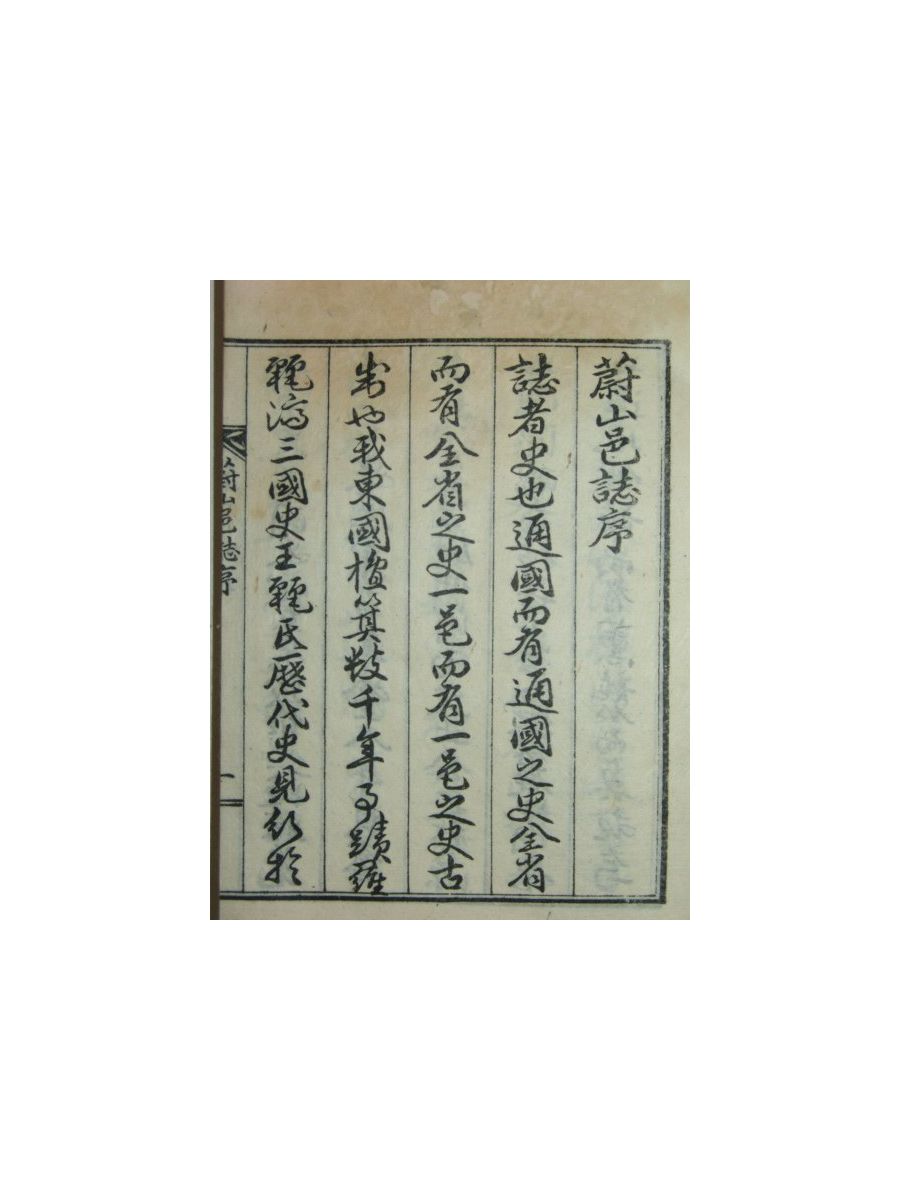 蔚山邑誌序
誌者史也通國而有通國之史全省
而有全省之史一邑而有一邑之史古
制也我東國檀箕數千年事蹟羅
麗濟三國史王麗氏歷代史見行於
蔚山邑誌序 一